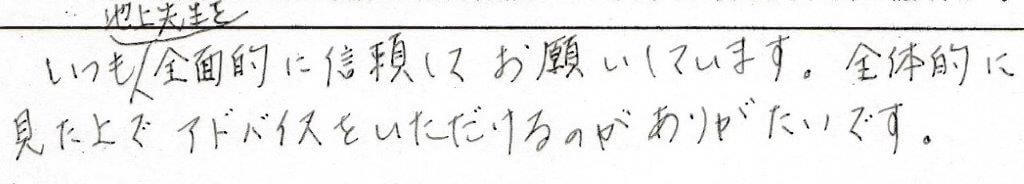 池上先生を
いつも全面的に信頼してお願いしています。全体的に
見た上でアドバイスをいただけるのがありがたいです。